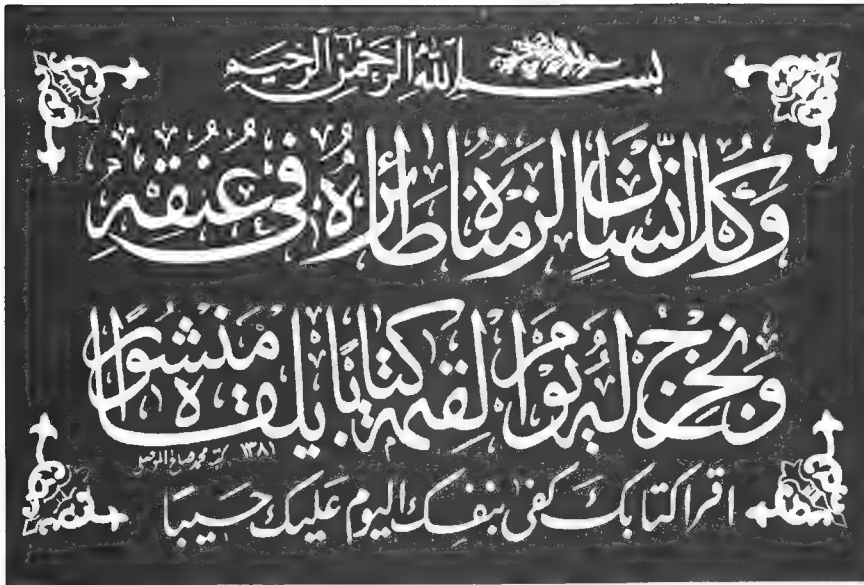 بسم الله الرحمن الرحيم
وَكُلَّ إِنسَانٍ أَلْزَمْنَاهُ طَائِرَهُ فِي عُنُقِهِ
وَنُخْرِجُ لَهُ يَوْمَ الْقِيمَةِ كِتَابًا يَلْقَاهُ مَنْشُورًا
كتبه محمد صالح الموصلي ١٣٨١
اقرا كتابك كفى بنفسك اليوم عليك حسيبا